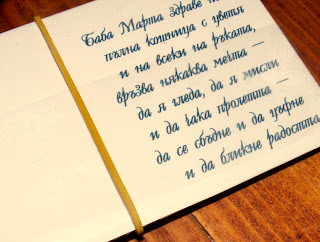 Баба Марта здраве
пълна кошница с цветя
и на всеки на ръката,
връзва някаква мечта —
да я гледа, да я мисли
и да чака пролетта —
да се сбъдне и да цъфне
и да бликне радостта